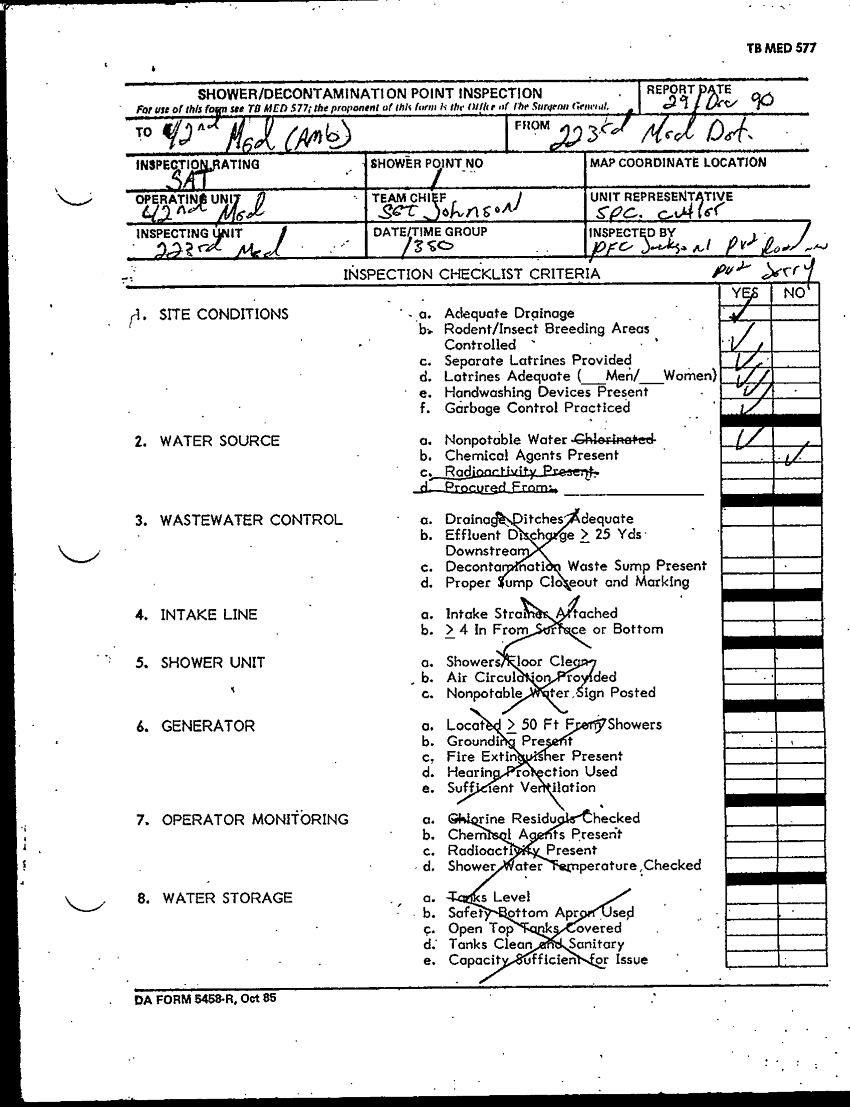 TB MED 577
SHOWER/DECONTAMINATION POINT INSPECTION
For use of this form see TB MED 577; the proponent of this form is the Office of The Surgeon General.
REPORT DATE
29/Dec 90
TO 42nd Med (Amb)
FROM 223rd Med Det.
INSPECTION RATING
SAT
SHOWER POINT NO
1
MAP COORDINATE LOCATION
OPERATING UNIT
42nd Med
TEAM CHIEF
SGT Johnson
UNIT REPRESENTATIVE
SPC. Cutler
INSPECTING UNIT
223rd Med
DATE/TIME GROUP
1350
INSPECTED BY
PFC Jackson Pvt
Pvt Jerry
INSPECTION CHECKLIST CRITERIA
YES NO
1. SITE CONDITIONS
a. Adequate Drainage
b. Rodent/Insect Breeding Areas
Controlled
c. Separate Latrines Provided
d. Latrines Adequate (___Men/___Women)
e. Handwashing Devices Present
f. Garbage Control Practiced
2. WATER SOURCE
a. Nonpotable Water Chlorinated
b. Chemical Agents Present
c. Radioactivity Present
d. Procured From:
3. WASTEWATER CONTROL
a. Drainage Ditches Adequate
b. Effluent Discharge ≥ 25 Yds
Downstream
c. Decontamination Waste Sump Present
d. Proper Sump Closeout and Marking
4. INTAKE LINE
a. Intake Strainer Attached
b. ≥ 4 In From Surface or Bottom
5. SHOWER UNIT
a. Showers/Floor Clean
b. Air Circulation Provided
c. Nonpotable Water Sign Posted
6. GENERATOR
a. Located ≥ 50 Ft From Showers
b. Grounding Present
c. Fire Extinguisher Present
d. Hearing Protection Used
e. Sufficient Ventilation
7. OPERATOR MONITORING
a. Chlorine Residuals Checked
b. Chemical Agents Present
c. Radioactivity Present
d. Shower Water Temperature Checked
8. WATER STORAGE
a. Tanks Level
b. Safety Bottom Apron Used
c. Open Top Tanks Covered
d. Tanks Clean and Sanitary
e. Capacity Sufficient for Issue
DA FORM 5458-R, Oct 85